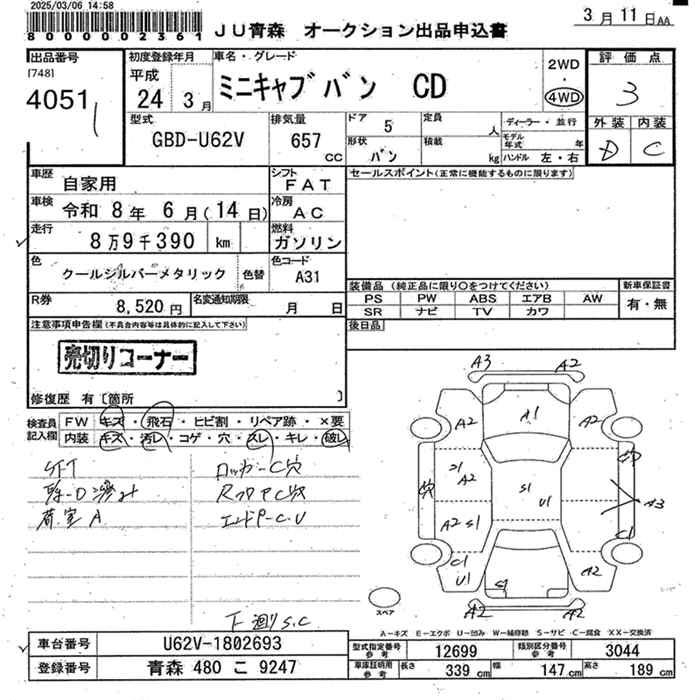 2025/03/06 14:58
8000002361
JU青森 オークション出品申込書
3月11日AA
出品番号
[748]
4051
初度登録年月
平成
24 3月
車名・グレード
ミニキャブバン CD
2WD
・
4WD
評価点
3
外装 内装
D C
型式
GBD-U62V
排気量
657
cc
ドア
5
定員
人
ディーラー・並行
形状
バン
積載
kg
モデル年式
年
ハンドル 左・右
車歴
自家用
シフト
FAT
セールスポイント(正常に機能するものに限ります)
車検
令和 8年 6月(14日)
冷房
AC
走行
8万9千390 km
燃料
ガソリン
色
クールシルバーメタリック
色替
色コード
A31
装備品(純正品に限り○をつけてください)
新車保証書
PS PW ABS エアB AW
SR ナビ TV カワ
有・無
R券
8,520円
名変通知期限
月 日
後日品
注意事項申告欄(不具合内容等は具体的に記入して下さい)
売切りコーナー
修復歴 有[箇所 ]
検査員
記入欄
FW キズ・飛石・ヒビ割・リペア跡・×要
内装 キズ・汚レ・コゲ・穴・スレ・キレ・破レ
SFT
荷室A
ロッカーC穴
エンドP-C.U
下廻りS.C
A3 A2
A2 A1 A2
S1 A2
S1 U1
A3
A2 S1
C1 C1
U1 S1 A2
A2 A2
スペア
A-キズ E-エクボ U-凹み W-補修跡 S-サビ C-腐食 XX-交換済
車台番号
U62V-1802693
登録番号
青森 480 こ 9247
型式指定番号
参考
12699
類別区分番号
参考
3044
車庫証明用
参考
長さ
339 cm
幅
147 cm
高さ
189 cm